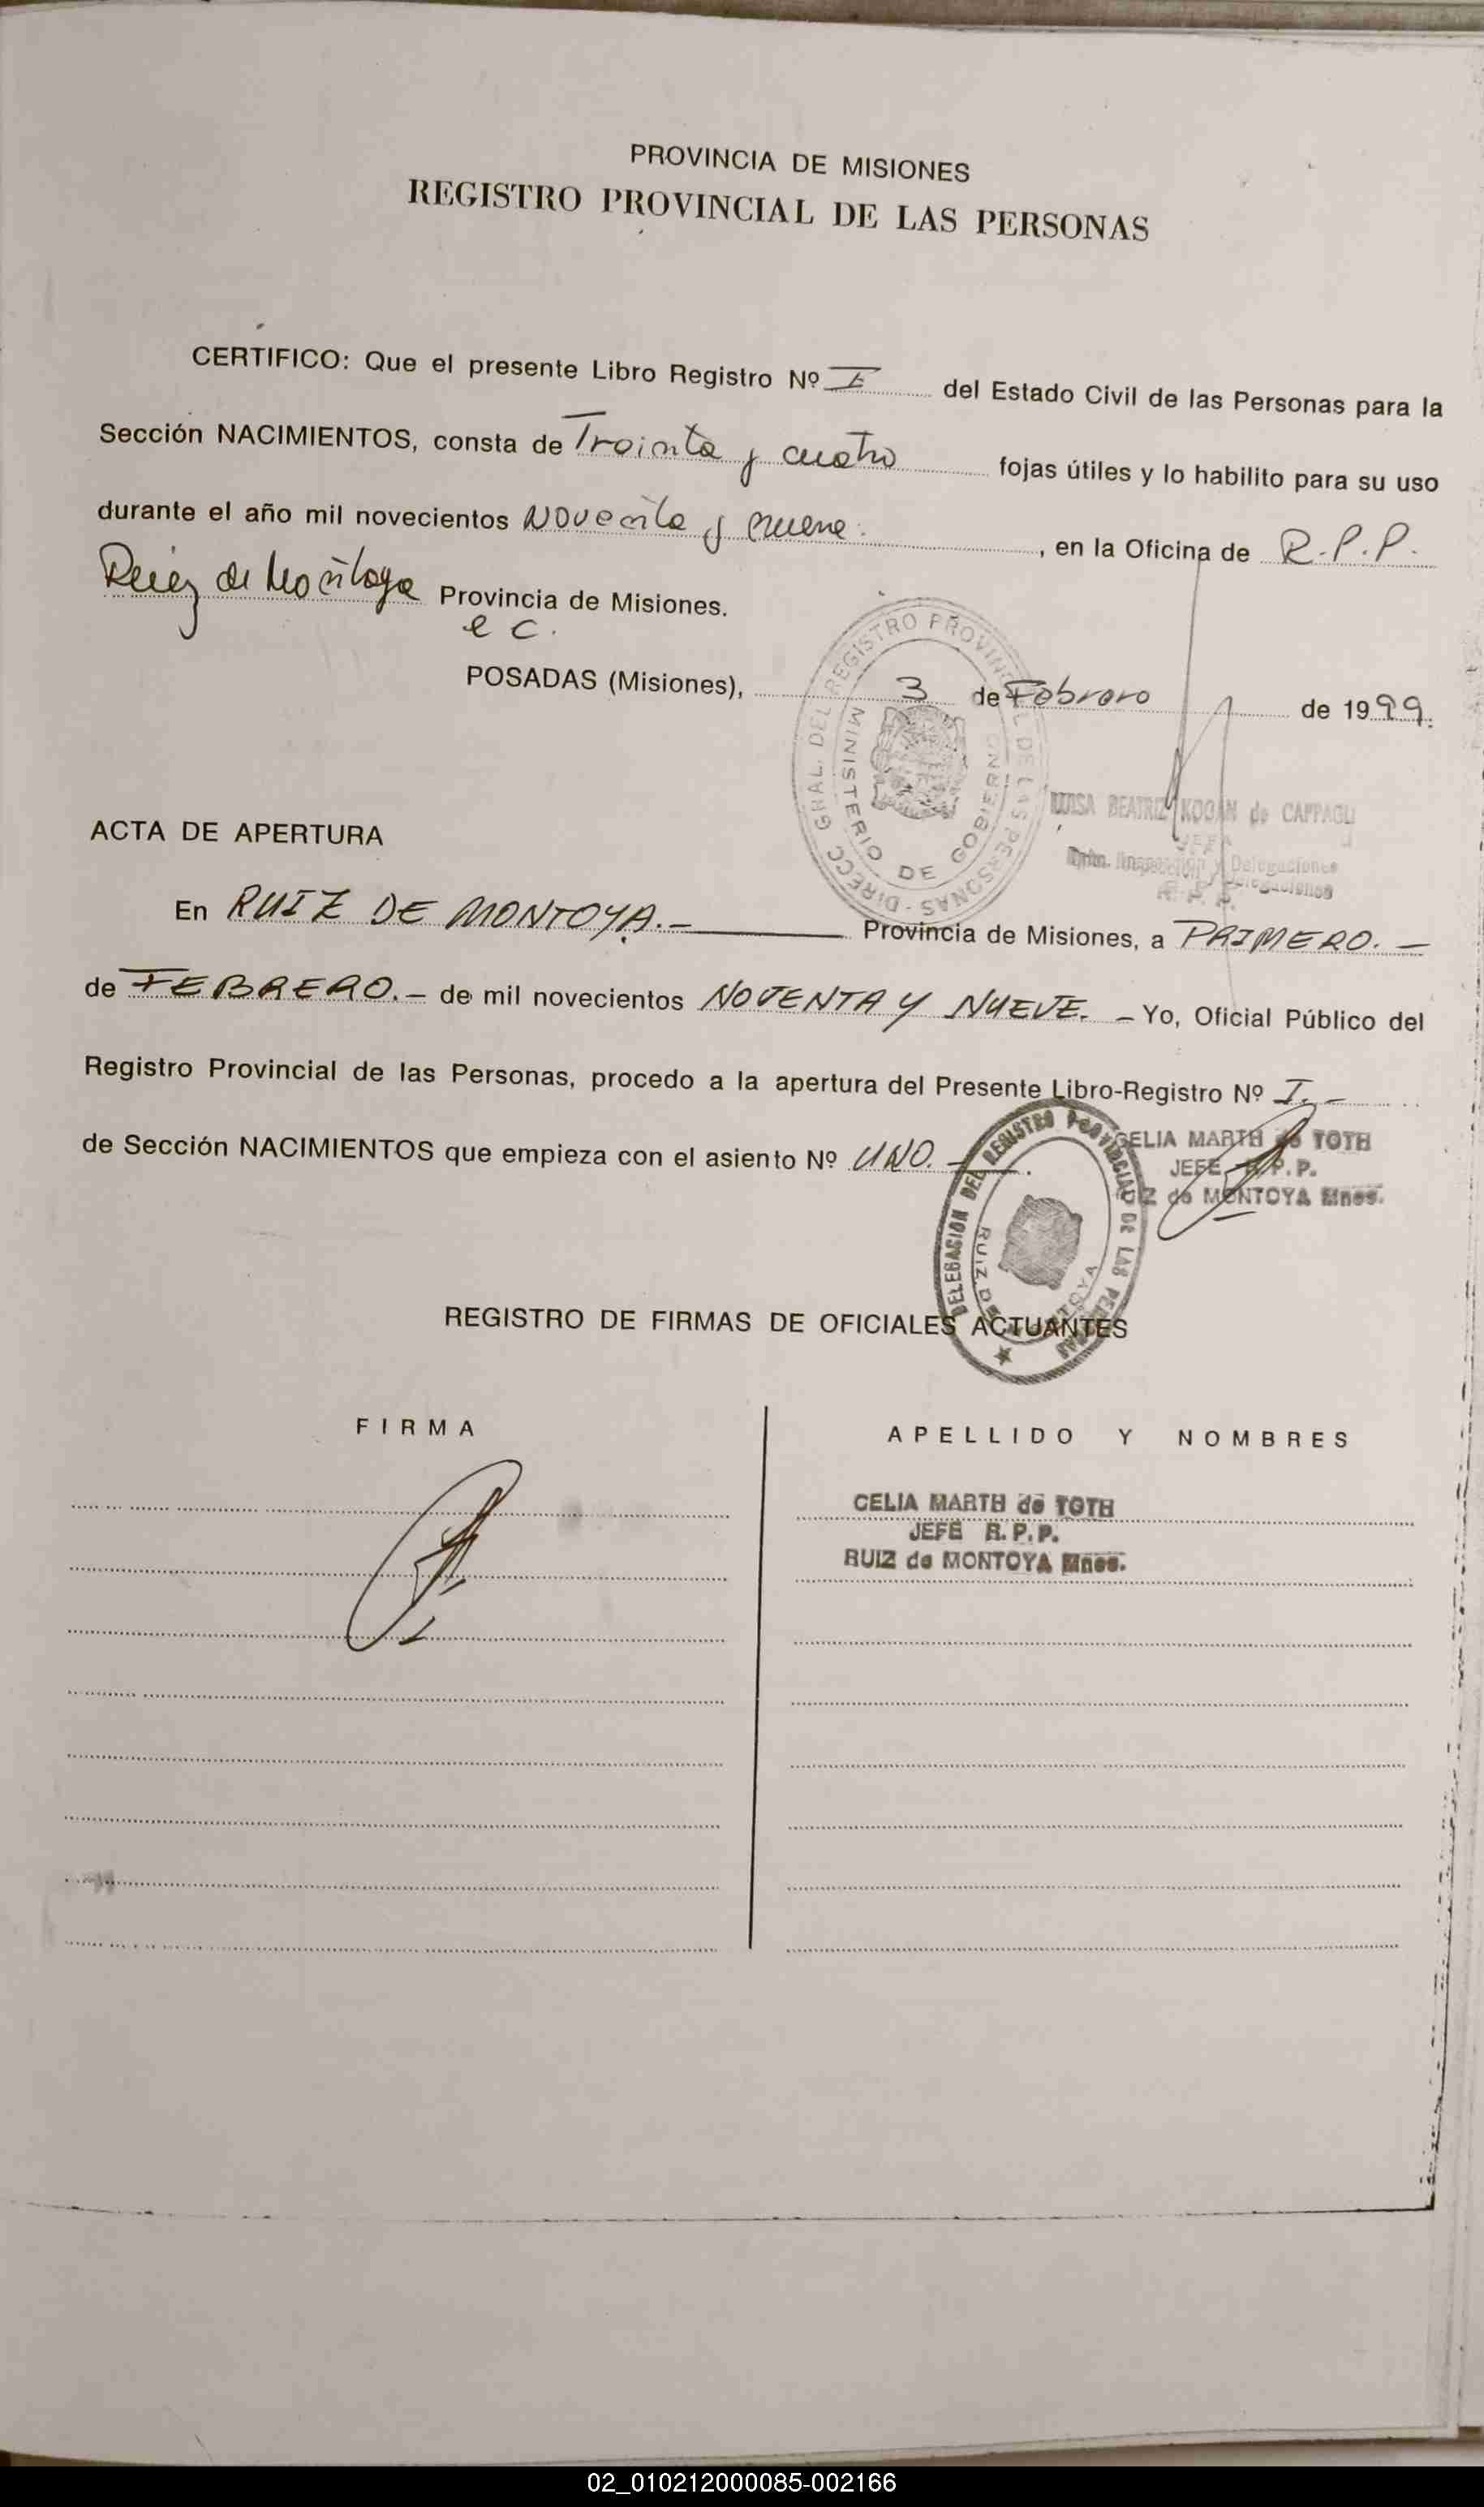 PROVINCIA DE MISIONES
REGISTRO PROVINCIAL DE LAS PERSONAS
CERTIFICO: Que el presente Libro Registro Nº I del Estado Civil de las Personas para la
Sección NACIMIENTOS, consta de Treinta y cuatro fojas útiles y lo habilito para su uso
durante el año mil novecientos Noventa y nueve. , en la Oficina de R.P.P.
Ruiz de Montoya Provincia de Misiones.
e c.
POSADAS (Misiones), 3 de Febrero de 1999.
DIRECC GRAL. DEL REGISTRO PROVINCIAL DE LAS PERSONAS -
MINISTERIO DE GOBIERNO
LUISA BEATRIZ KOGAN de CAPPAGLI
JEFE
Dpto. Inspección y Delegaciones
R. P. P.
ACTA DE APERTURA
En RUIZ DE MONTOYA.- Provincia de Misiones, a PRIMERO. -
de FEBRERO. - de mil novecientos NOVENTA Y NUEVE. - Yo, Oficial Público del
Registro Provincial de las Personas, procedo a la apertura del Presente Libro-Registro Nº I. -
de Sección NACIMIENTOS que empieza con el asiento Nº UNO. -
CELIA MARTH de TOTH
JEFE R.P.P.
Z de MONTOYA Mnes.
DELEGACION DEL REGISTRO PROVINCIAL DE LAS PERSONAS
RUIZ DE MONTOYA
REGISTRO DE FIRMAS DE OFICIALES ACTUANTES
FIRMA
APELLIDO Y NOMBRES
CELIA MARTH de TOTH
JEFE R.P.P.
RUIZ de MONTOYA Mnes.
02_010212000085-002166